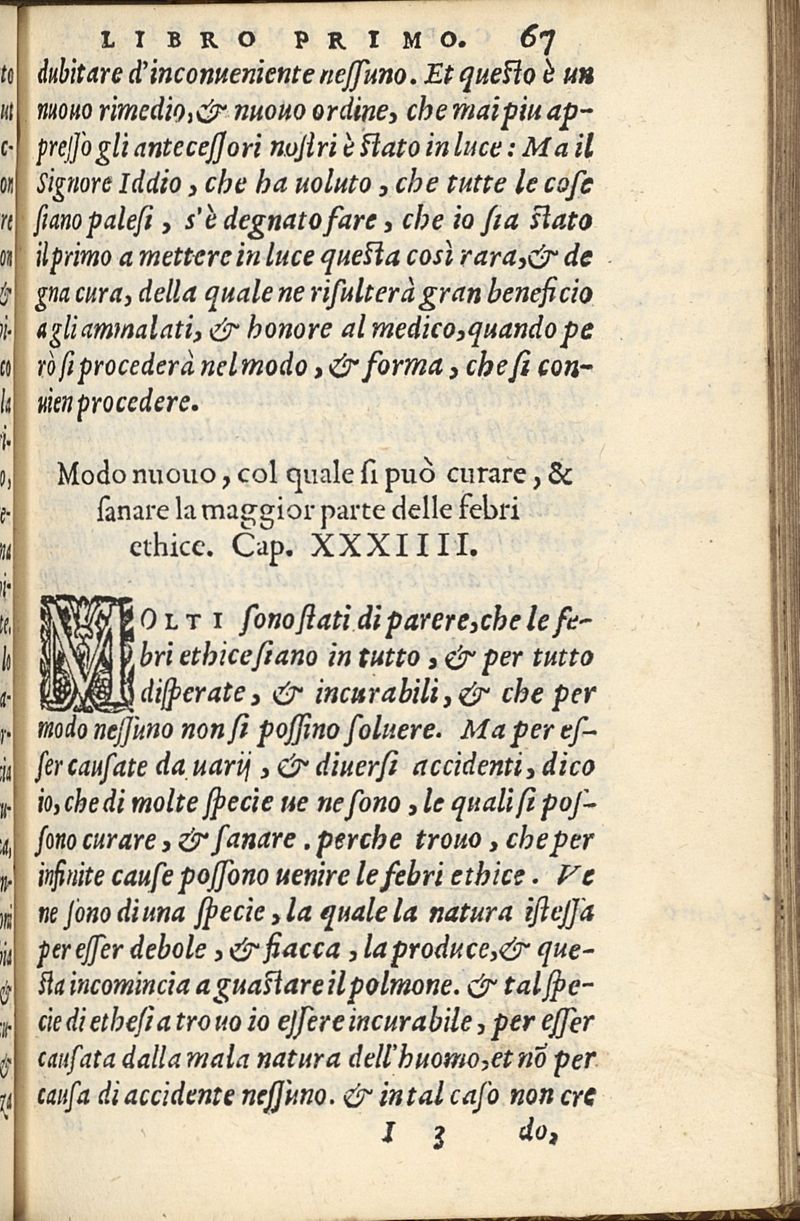 LIBRO PRIMO. 67
dubitare d'inconueniente neſſuno. Et queſto è un
nuouo rimedio, & nuouo ordine, che mai piu ap-
preſſo gli anteceſſori noſtri è ſtato in luce: Ma il
Signore Iddio, che ha uoluto, che tutte le coſe
ſiano paleſi, s'è degnato fare, che io ſia ſtato
il primo a mettere in luce queſta così rara, & de
gna cura, della quale ne riſulterà gran beneficio
a gli ammalati, & honore al medico, quando pe
rò ſi procederà nel modo, & forma, che ſi con-
uien procedere.
Modo nuouo, col quale ſi può curare, &
ſanare la maggior parte delle febri
ethice. Cap. XXXIIII.
MOLTI ſono ſtati di parere, che le fe-
bri ethice ſiano in tutto, & per tutto
diſperate, & incurabili, & che per
modo neſſuno non ſi poſſino ſoluere. Ma per eſ-
ſer cauſate da uarij, & diuerſi accidenti, dico
io, che di molte ſpecie ue ne ſono, le quali ſi poſ-
ſono curare, & ſanare. perche trouo, che per
infinite cauſe poſſono uenire le febri ethice. Ve
ne ſono di una ſpecie, la quale la natura iſteſſa
per eſſer debole, & fiacca, la produce, & que-
ſta incomincia a guaſtare il polmone. & tal ſpe-
cie di etheſia trouo io eſſere incurabile, per eſſer
cauſata dalla mala natura dell'huomo, et nõ per
cauſa di accidente neſſuno. & in tal caſo non cre
I 3 do,